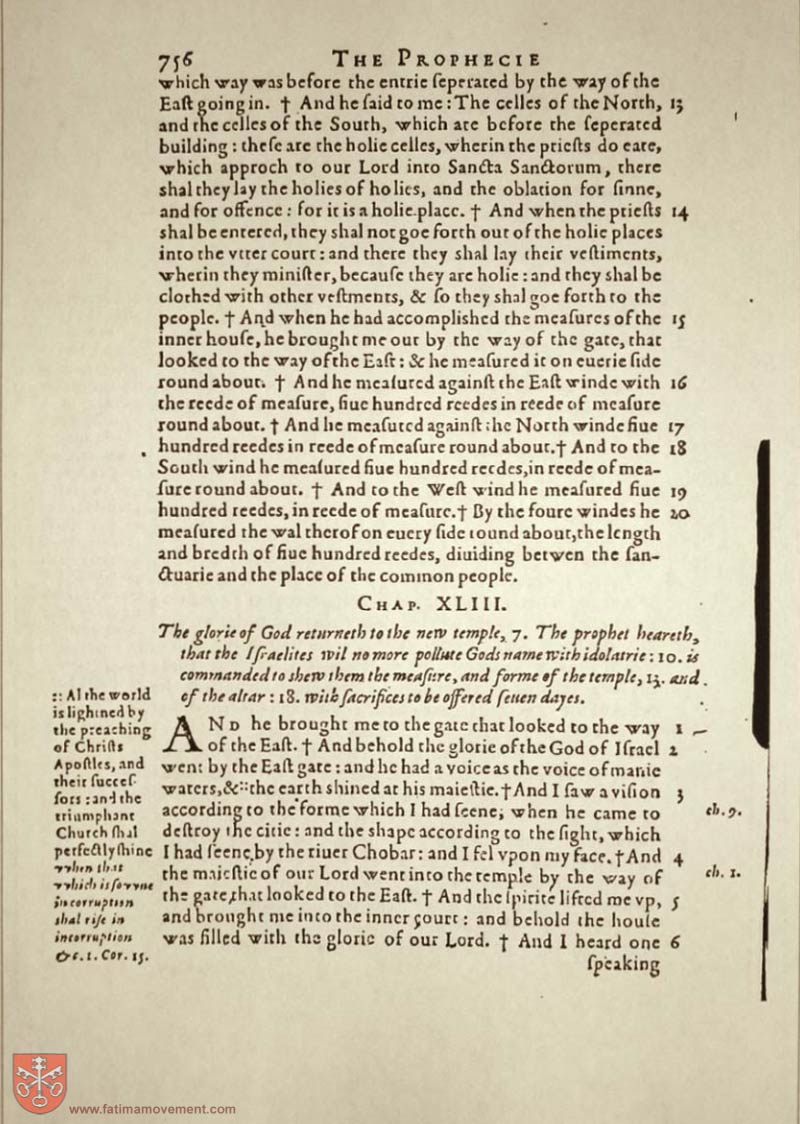 756 THE PROPHECIE
which way was before the entrie ſeperated by the way of the
Eaſt going in. † And he ſaid to me: The celles of the North, 13
and the celles of the South, which are before the ſeperated
building: theſe are the holie celles, wherin the prieſts do eate,
which approch to our Lord into Sancta Sanctorum, there
shal they lay the holies of holies, and the oblation for ſinne,
and for offence: for it is a holie place. † And when the prieſts 14
shal be entered, they shal not goe forth out of the holie places
into the vtter court: and there they shal lay their veſtiments,
wherin they miniſter, becauſe they are holie: and they shal be
clothed with other veſtments, & ſo they shal goe forth to the
people. † And when he had accomplished the meaſures of the 15
inner houſe, he brought me out by the way of the gate, that
looked to the way of the Eaſt: & he meaſured it on euerie ſide
round about. † And he meaſured againſt the Eaſt winde with 16
the reede of meaſure, fiue hundred reedes in reede of meaſure
round about. † And he meaſured againſt the North winde fiue 17
hundred reedes in reede of meaſure round about. † And to the 18
South wind he meaſured fiue hundred reedes, in reede of mea-
ſure round about. † And to the Weſt wind he meaſured fiue 19
hundred reedes, in reede of meaſure. † By the foure windes he 20
meaſured the wal therof on euery ſide round about, the length
and bredth of fiue hundred reedes, diuiding betwen the ſan-
ctuarie and the place of the common people.
CHAP. XLIII.
The glorie of God returneth to the new temple, 7. The prophet heareth,
that the Iſraelites wil no more pollute Gods name with idolatrie: 10. is
commanded to shew them the meaſure, and forme of the temple, 13. and
of the altar: 18. with ſacrifices to be offered ſeuen dayes.
AND he brought me to the gate that looked to the way 1
of the Eaſt. † And behold the glorie of the God of Iſrael 2
went by the Eaſt gate: and he had a voice as the voice of manie
waters, & :: the earth shined at his maieſtie. † And I ſaw a viſion 3
according to the forme which I had ſeene, when he came to
deſtroy the citie: and the shape according to the ſight, which
I had ſeene by the riuer Chobar: and I fel vpon my face. † And 4
the maieſtie of our Lord went into the temple by the way of
the gate, that looked to the Eaſt. † And the ſpirite lifted me vp, 5
and brought me into the inner court: and behold the houſe
was filled with the glorie of our Lord. † And I heard one 6
ſpeaking
:: Al the world
is lightned by
the preaching
of Chriſts
Apoſtles, and
their ſucceſ-
ſors: and the
triumphant
Church ſhal
perfectly ſhine
when that
which is ſowne
in corruption
shal riſe in
incorruption
&c. 1. Cor. 15.
ch. 9.
ch. 1.
www.fatimamovement.com